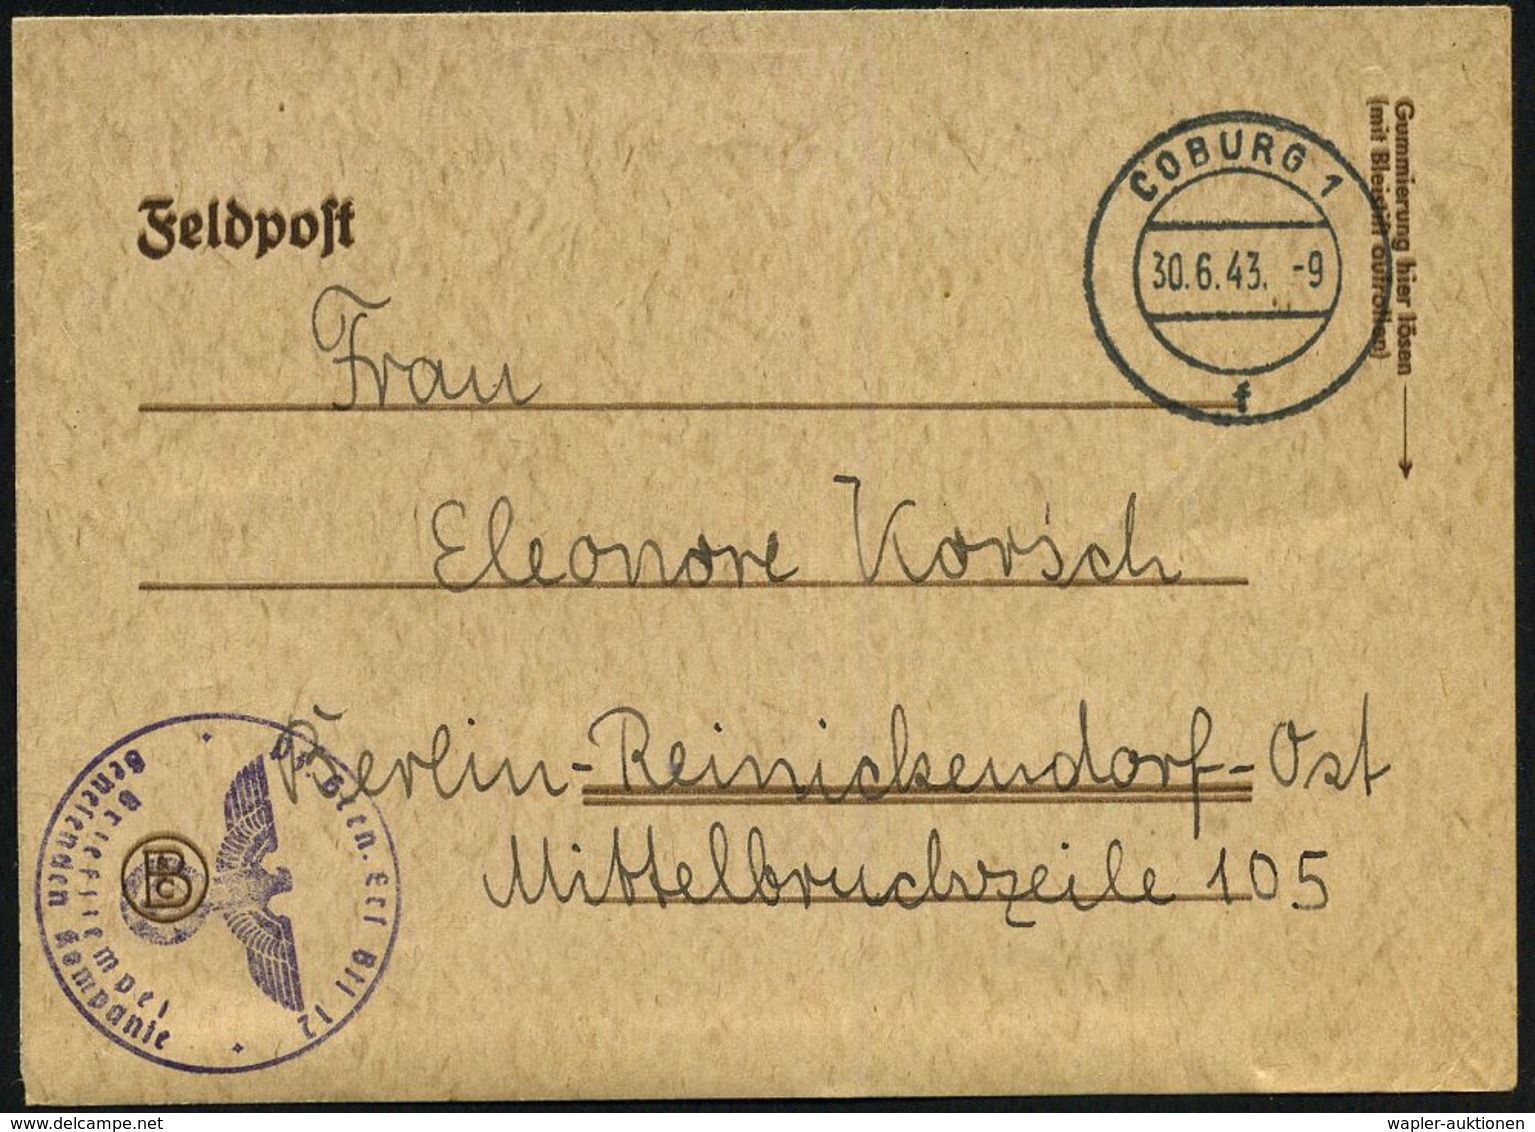 Feldpost
COBURG 1
30.6.43. -9
f
Gummierung hier lösen
(mit Bleistift aufrollen)
Frau
Eleonore Korsch
Berlin-Reinickendorf-Ost
Mittelbruchzeile 105
Genesenden Kompanie
Briefstempel
12
wapler-auktionen